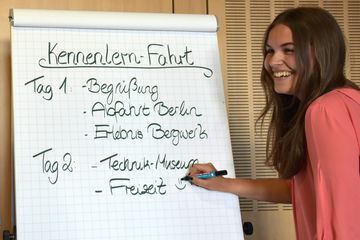 Kennenlern-Fahrt
Tag 1: - Begrüßung
- Abfahrt Berlin
- Erlebnis Bergwerk
Tag 2: - Technik-Museum
- Freizeit